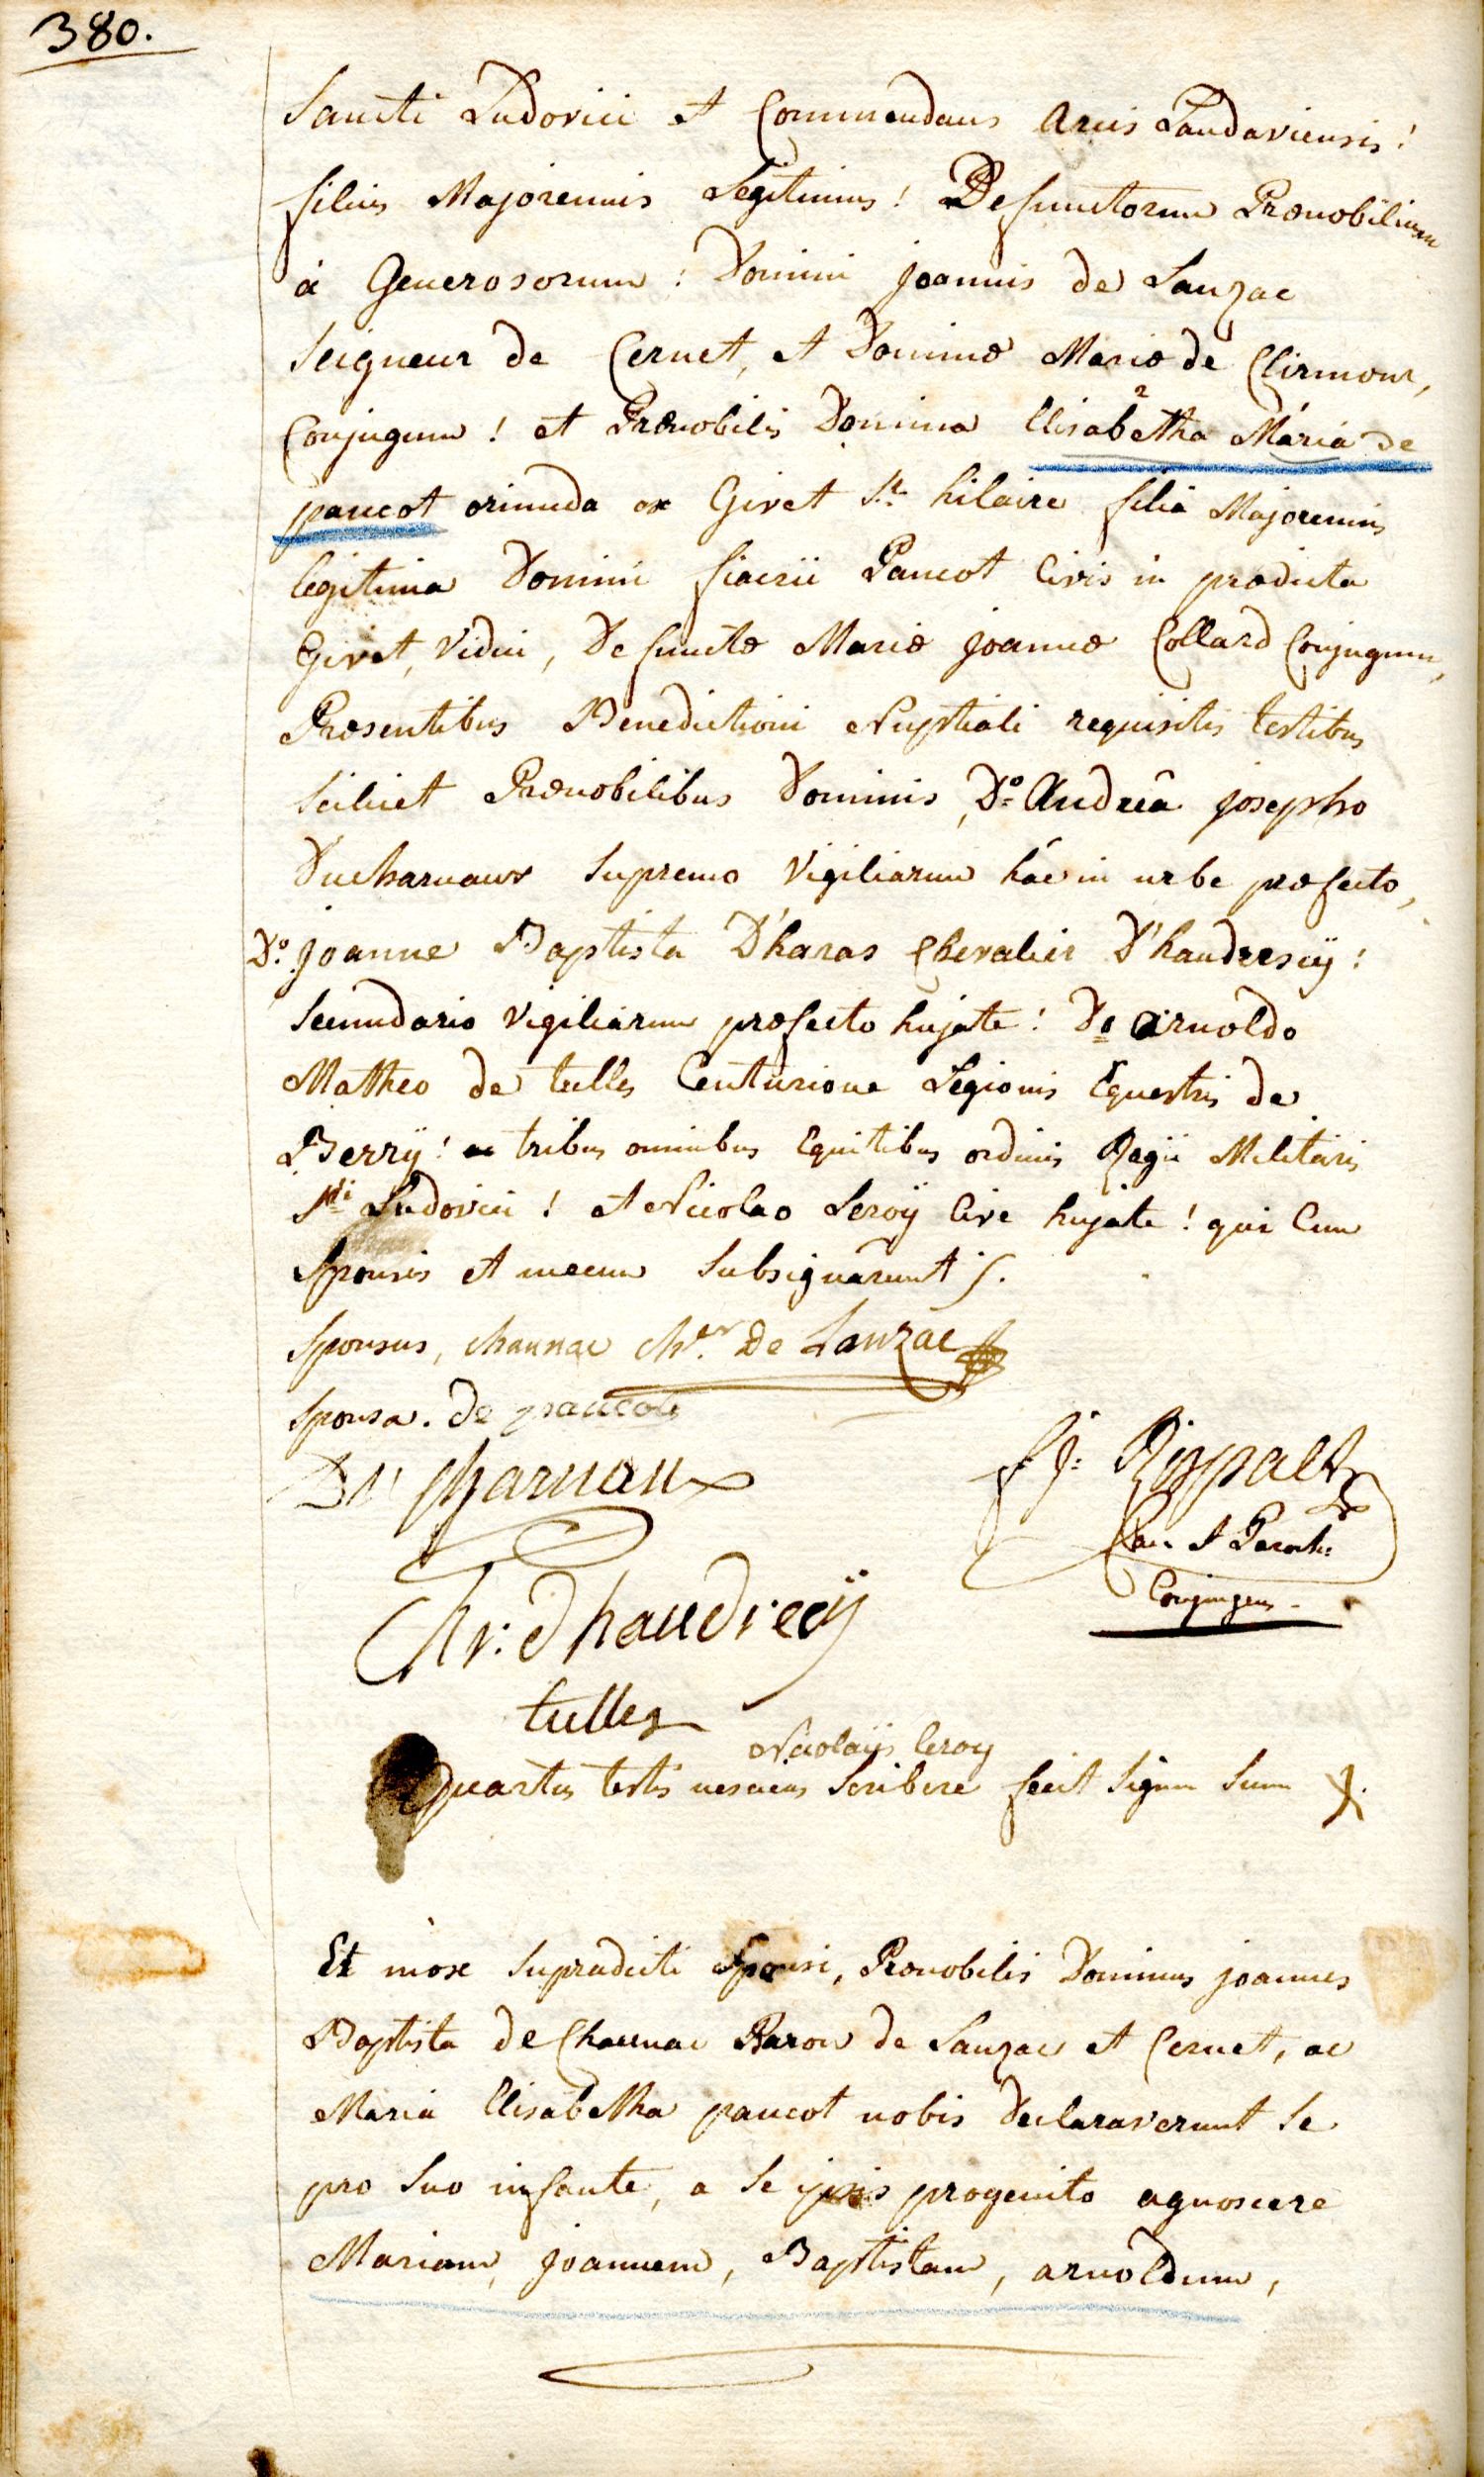 380.
Sancti Ludovici et Commendans Arcis Landaviensis!
filius Majorennis Legitimus! Defunctorum Prænobilium
à Generosorum! Domini joannis de Lanzac
Seigneur de Cernet, et Dominæ Mariæ de Clirmont,
Conjugum! et Prænobilis Domina Elisabetha Maria de
paucot oriunda ex Givet St. hilaire filia Majorennis
legitima Domini fiacrii Paucot Civis in prædicta
Givet, Vidui, Defunctæ Mariæ joannæ Collard Conjugum,
Præsentibus Benedictioni Nuptiali requisitis testibus
scilicet Prænobilibus Dominis, Do. Andreâ josepho
Ducharnaux Supremo Vigiliarum hâc in urbe præfecto,
Do. joanne Baptista D'haras Chevalier D'haudresciÿ!
Secundario Vigiliarum præfecto hujate! Do Arnoldo
Mattheo de tulles Centurione Legionis Equestris de
Berrÿ! ac tribus omnibus Equitibus ordinis Regii Militaris
Sti Ludovici! et Nicolao Leroÿ Cive hujate! qui Cum
Sponsis et mecum Subsignârunt S.
Sponsus, chaunac cher. De Lanzac
Sponsa. de paucot
Du charnaux
f. j. Rippalt
Can. & Paroch:
Conjungens.
Chr: Dhaudrecÿ
tulles
Nicolaÿs leroy
Quartus testis nescius Scribere fecit Signum Suum
Et mòx Supradicti Sponsi, Prænobilis Dominus joannes
Baptista de Chaunac Baron de Lanzac et Cernet, ac
Maria Elisabetha paucot nobis Declaraverunt Se
pro Suo infante, a Se ipsis progenito agnoscere
Mariam, joannem, Baptistam, arnoldum,